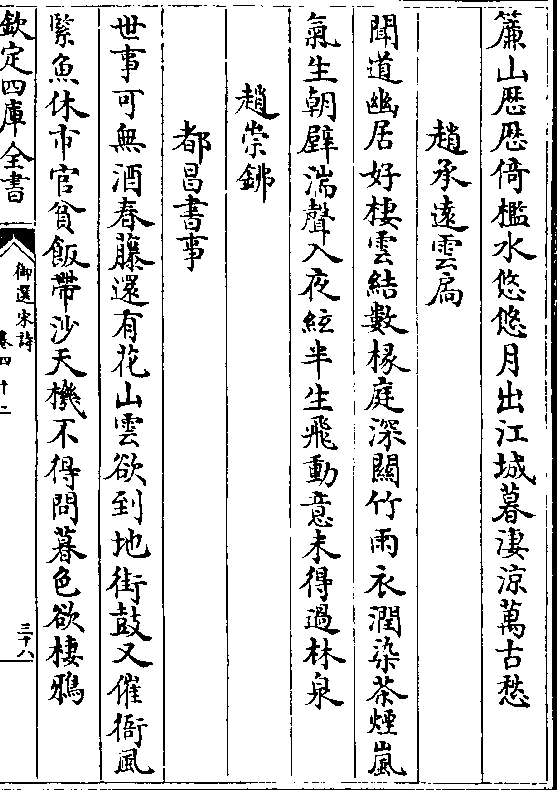 簾山歴歴倚檻水悠悠月出江城暮淒涼萬古愁
趙承遠雲扃
聞道幽居好棲雲結數椽庭深關竹雨衣潤染茶煙嵐
氣生朝壁湍聲入夜絃半生飛動意未得過林泉
趙崇鉘
都昌書事
世事可無酒春藤還有花山雲欲到地街鼓又催衙風
緊魚休市官貧飯帶沙天機不得問暮色欲棲鴉
欽定四庫全書
御選宋詩
卷四十二
三十八